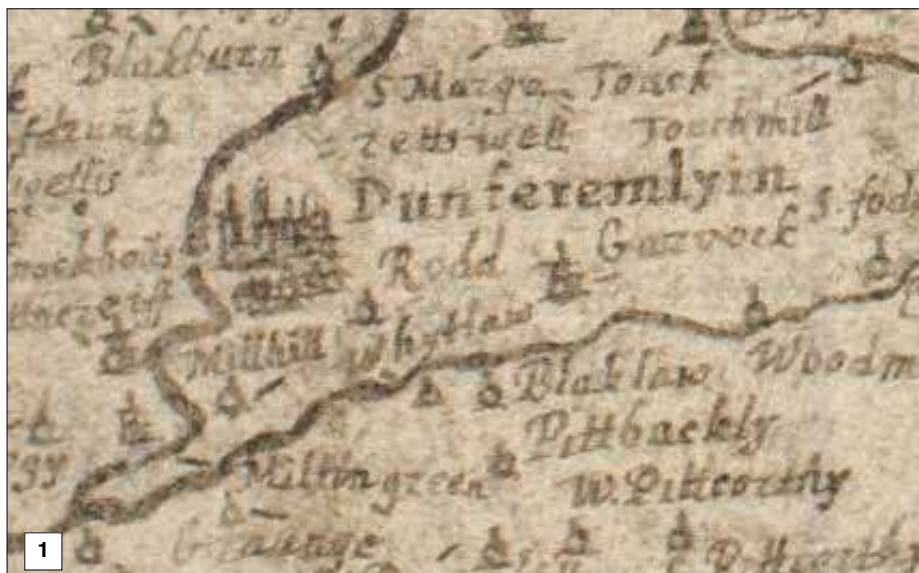 Blakburn
S Marga Touch
retts well Touchmill
Dunferemlyin
S. fod
Garvock
Rodd
Millhill Whytlaw
Blaklaw Woodm
Pittbackly
Miltingreen W. Pittcorthy
Graunge
1